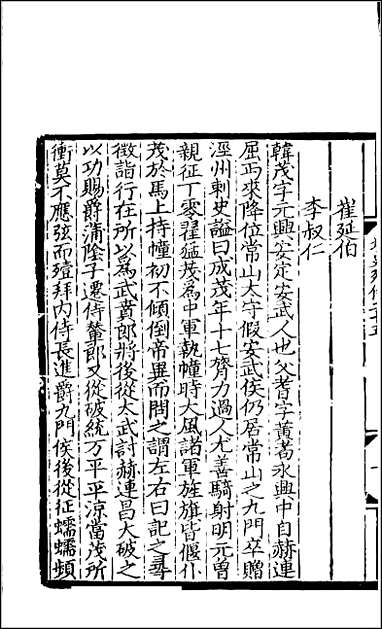 崔延伯
李叔仁
韓茂字元興安定安武人也父耆字黃耇永興中自赫連
屈丐來降位常山太守假安武侯仍居常山之九門卒贈
涇州刺史諡曰成茂年十七膂力過人尤善騎射明元曾
親征丁零翟猛茂為中軍執幢時大風諸軍旌旗皆偃仆
茂於馬上持幢初不傾倒帝異而問之謂左右曰記之尋
徵詣行在所以為武賁郎將後從太武討赫連昌大破之
以功賜爵蒲陰子遷侍輦郎又從破統万平平涼當茂所
衝莫不應弦而殪拜内侍長進爵九門侯後從征蠕蠕頻